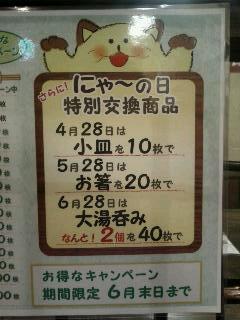 さらに!
にゃ〜の日
特別交換商品
4月28日は
小皿を10枚で
5月28日は
お箸を20枚で
6月28日は
大湯呑み
なんと!2個を40枚で
お得なキャンペーン
期間限定 6月末日まで